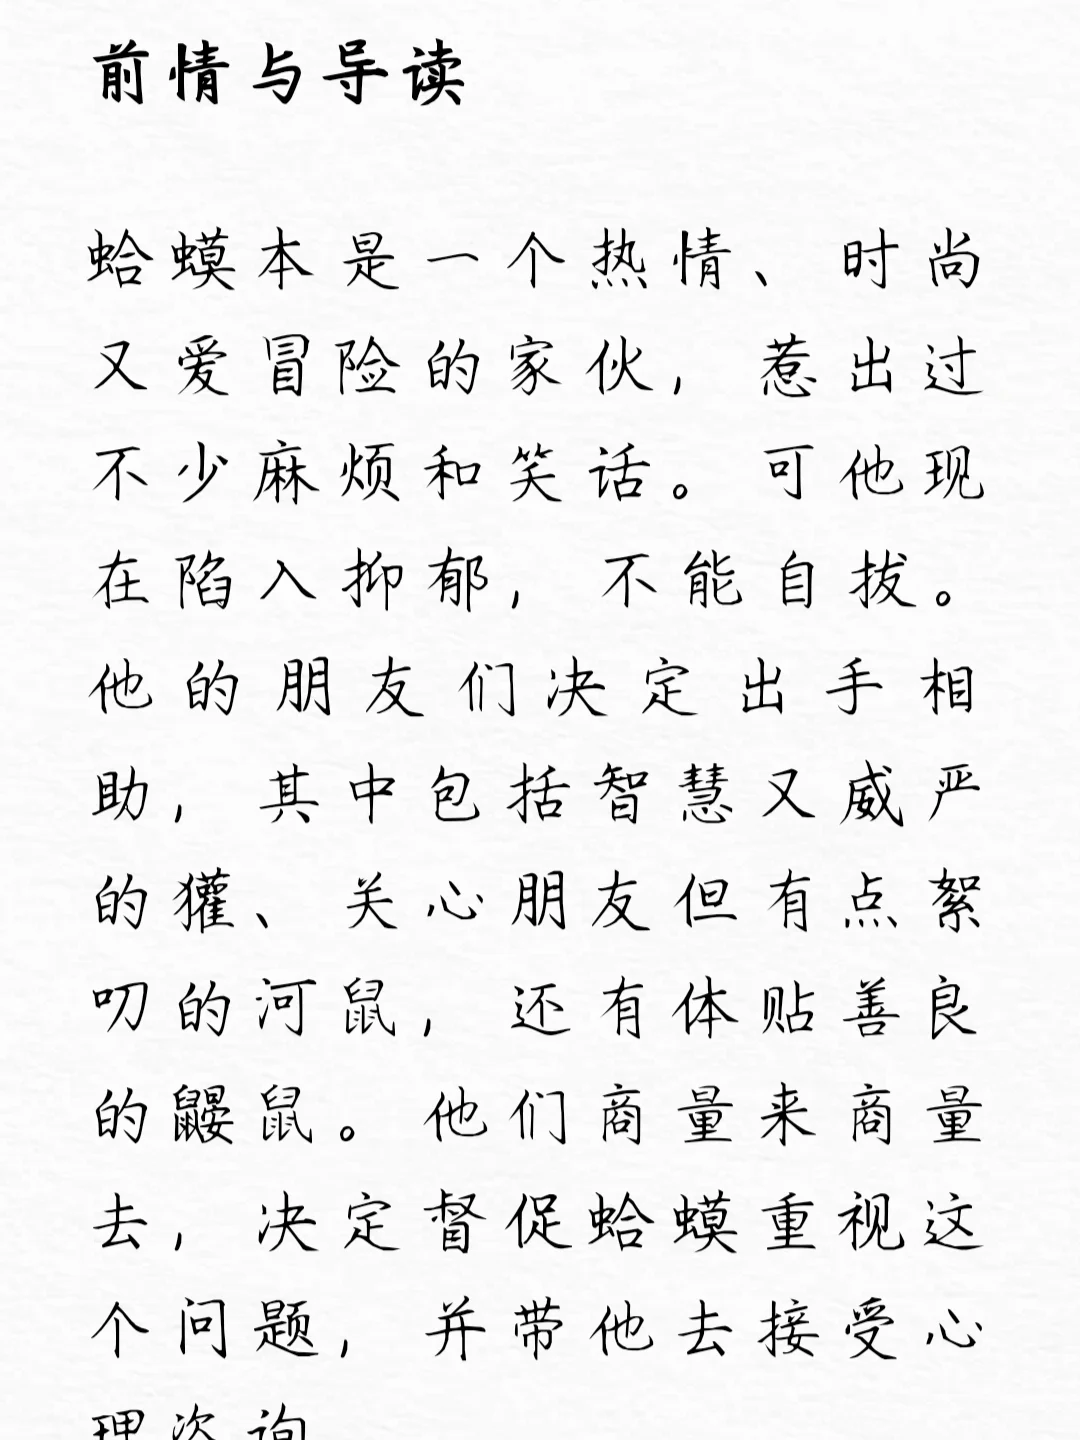 前情与导读
蛤蟆本是一个热情、时尚
又爱冒险的家伙，惹出过
不少麻烦和笑话。可他现
在陷入抑郁，不能自拔。
他的朋友们决定出手相
助，其中包括智慧又威严
的獾、关心朋友但有点絮
叨的河鼠，还有体贴善良
的鼹鼠。他们商量来商量
去，决定督促蛤蟆重视这
个问题，并带他去接受心
理咨询